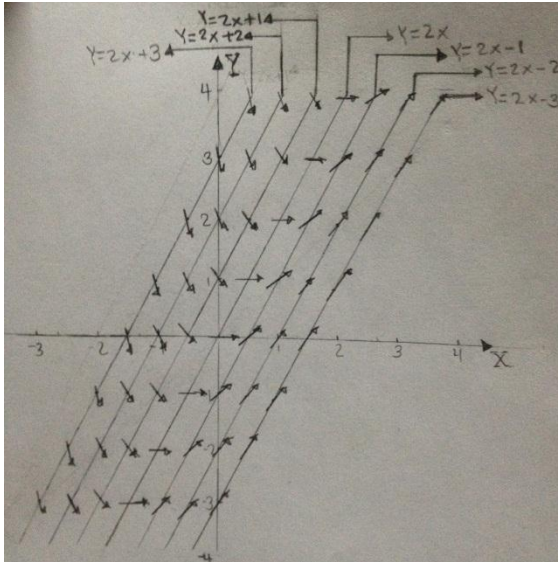 Y=2x+1
Y=2x+2
Y=2x+3
Y
Y=2x
Y=2x-1
Y=2x-2
Y=2x-3
4
3
2
1
-3 -2 -1 1 2 3 4 X
-1
-2
-3
-4